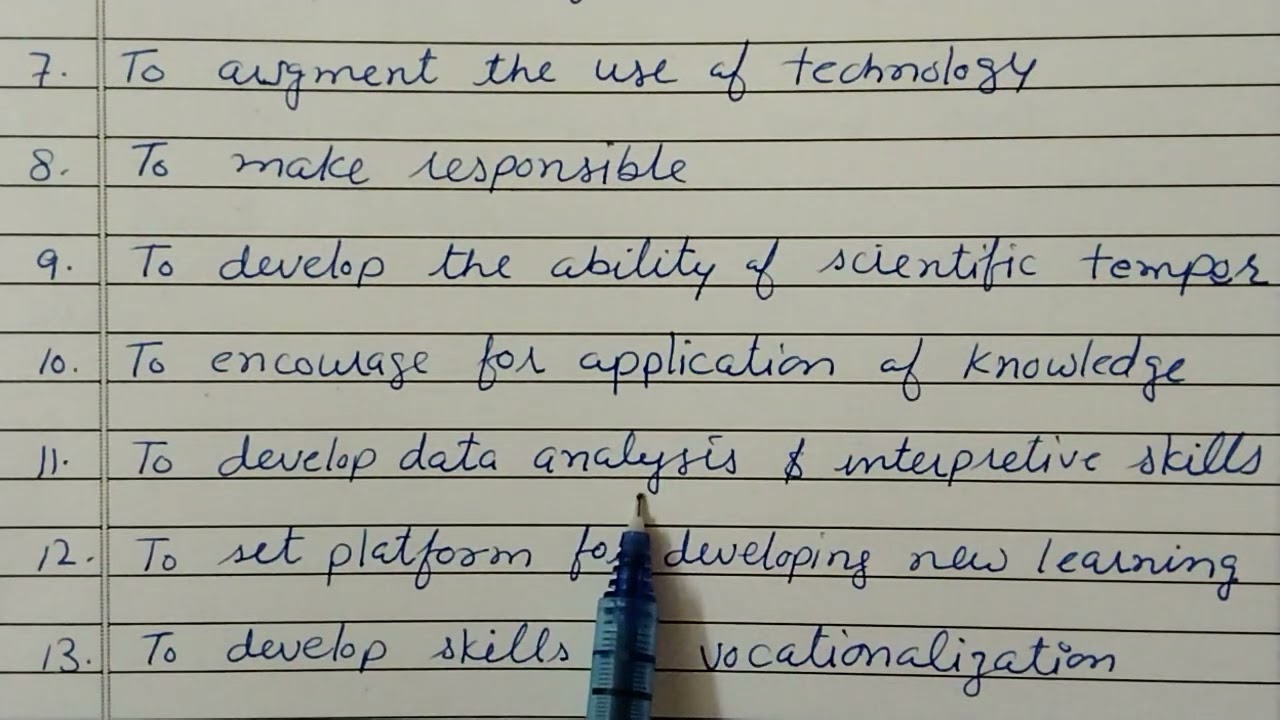 7. To augment the use of technology
8. To make responsible
9. To develop the ability of scientific temper
10. To encourage for application of knowledge
11. To develop data analysis & interpretive skills
12. To set platform for developing new learning
13. To develop skills vocationalization